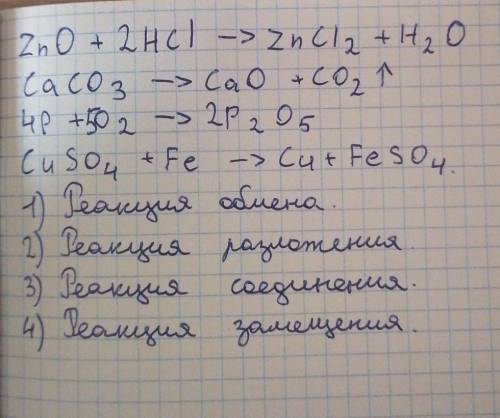 ZnO + 2HCl —> ZnCl₂ + H₂O
CaCO₃ —> CaO + CO₂ ↑
4P + 5O₂ —> 2P₂O₅
CuSO₄ + Fe —> Cu + FeSO₄.
1) Реакция обмена.
2) Реакция разложения.
3) Реакция соединения.
4) Реакция замещения.